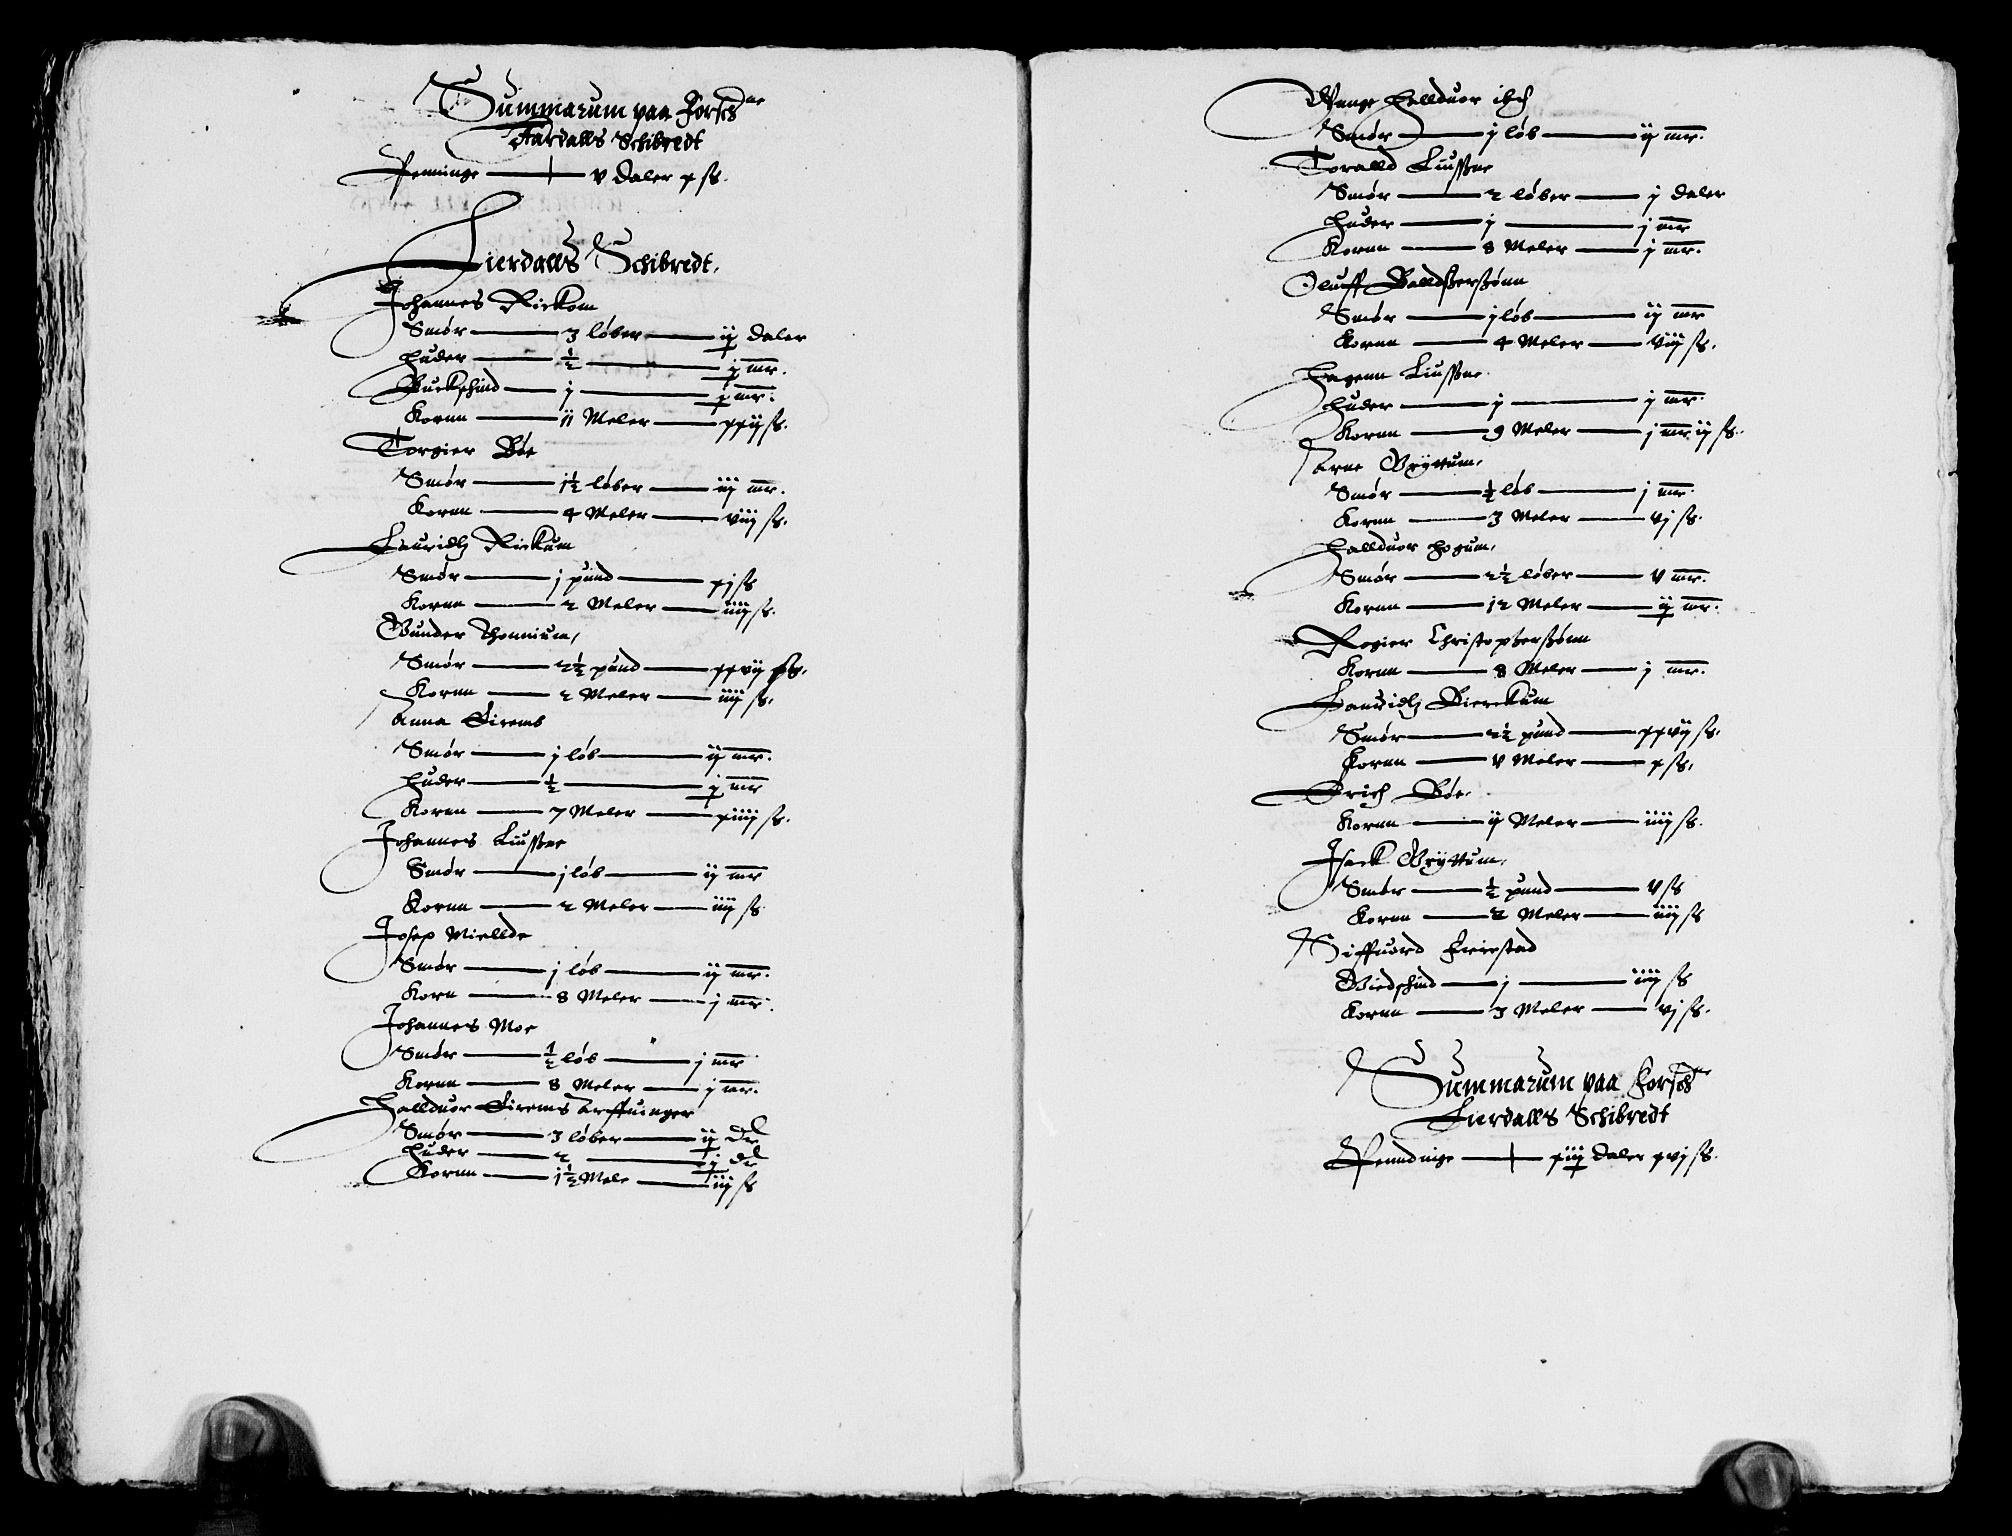 Summarum paa Forschne
Aardalls Schibredt
Penninge — v daler x ſs.
Lierdalls Schibredt.
Johannes Rickom
Smör — 3 löber — ij daler
Huder — ½ — j mr.
Buckschind — j — j mr.
Kornn — 11 Meler — xxij ſs.
Torgier Böe
Smör — 1½ löber — iij mr.
Kornn — 4 Meler — viij ſs.
Lauridtz Rickum
Smör — j pund — xj ſs
Kornn — 2 Meler — iiij ſs.
Gunder Thonnium,
Smör — 2½ pund — xxvij ſs.
Kornn — 2 Meler — iiij ſs.
Anna Eirems
Smör — j löb — ij mr.
Huder — ½ — j mr
Kornn — 7 Meler — xiiij ſs.
Johannes Liusne
Smör — j löb — ij mr
Kornn — 2 Meler — iiij ſs
Josep Miellde
Smör — j löb — ij mr.
Korn — 8 Meler — j mr.
Johannes Moe
Smör — ½ löb — j mr
Kornn — 8 Meler — j mr.
Hallduor Eirems Arffuinger
Smör — 3 löber — ij dlr
Huder — 2 — j dlr
Kornn — 1½ Mele — iij ſs
Unge Hallduor ibid
Smör — j löb — ij mr.
Toralld Liusne
Smör — 2 löber — j daler
Huder — j — j mr
Kornn — 8 Meler — j mr.
Oluff Balldtzersönn
Smör — j löb — ij mr
Kornn — 4 Meler — viij ſs.
Hagenn Liusne.
Huder — j — j mr.
Kornn — 9 Meler — j mr ij ſs.
Arne Gryttum,
Smör — ½ löb — j mr.
Kornn — 3 Meler — vj ſs.
Hallduor Hogum,
Smör — 2½ löber — v mr.
Kornn — 12 Meler — ij mr.
Rogier Christophersönn
Kornn — 8 Meler — j mr.
Lauridtz Bierckum
Smör — 2½ pund — xxvij ſs.
Kornn — v Meler — x ſs,
Erich Böe.
Kornn — ij Meler — iiij ſs.
Isack Gryttum,
Smör — ½ pund — v ſs
Kornn — 2 Meler — iiij ſs
Siffuord Eriestad
Giedschind — j — iiij ſs
Kornn — 3 Meler — vj ſs.
Summarum paa Forschne
Lierdalls Schibredt
Penndinge — xiij daler xvj ſs.